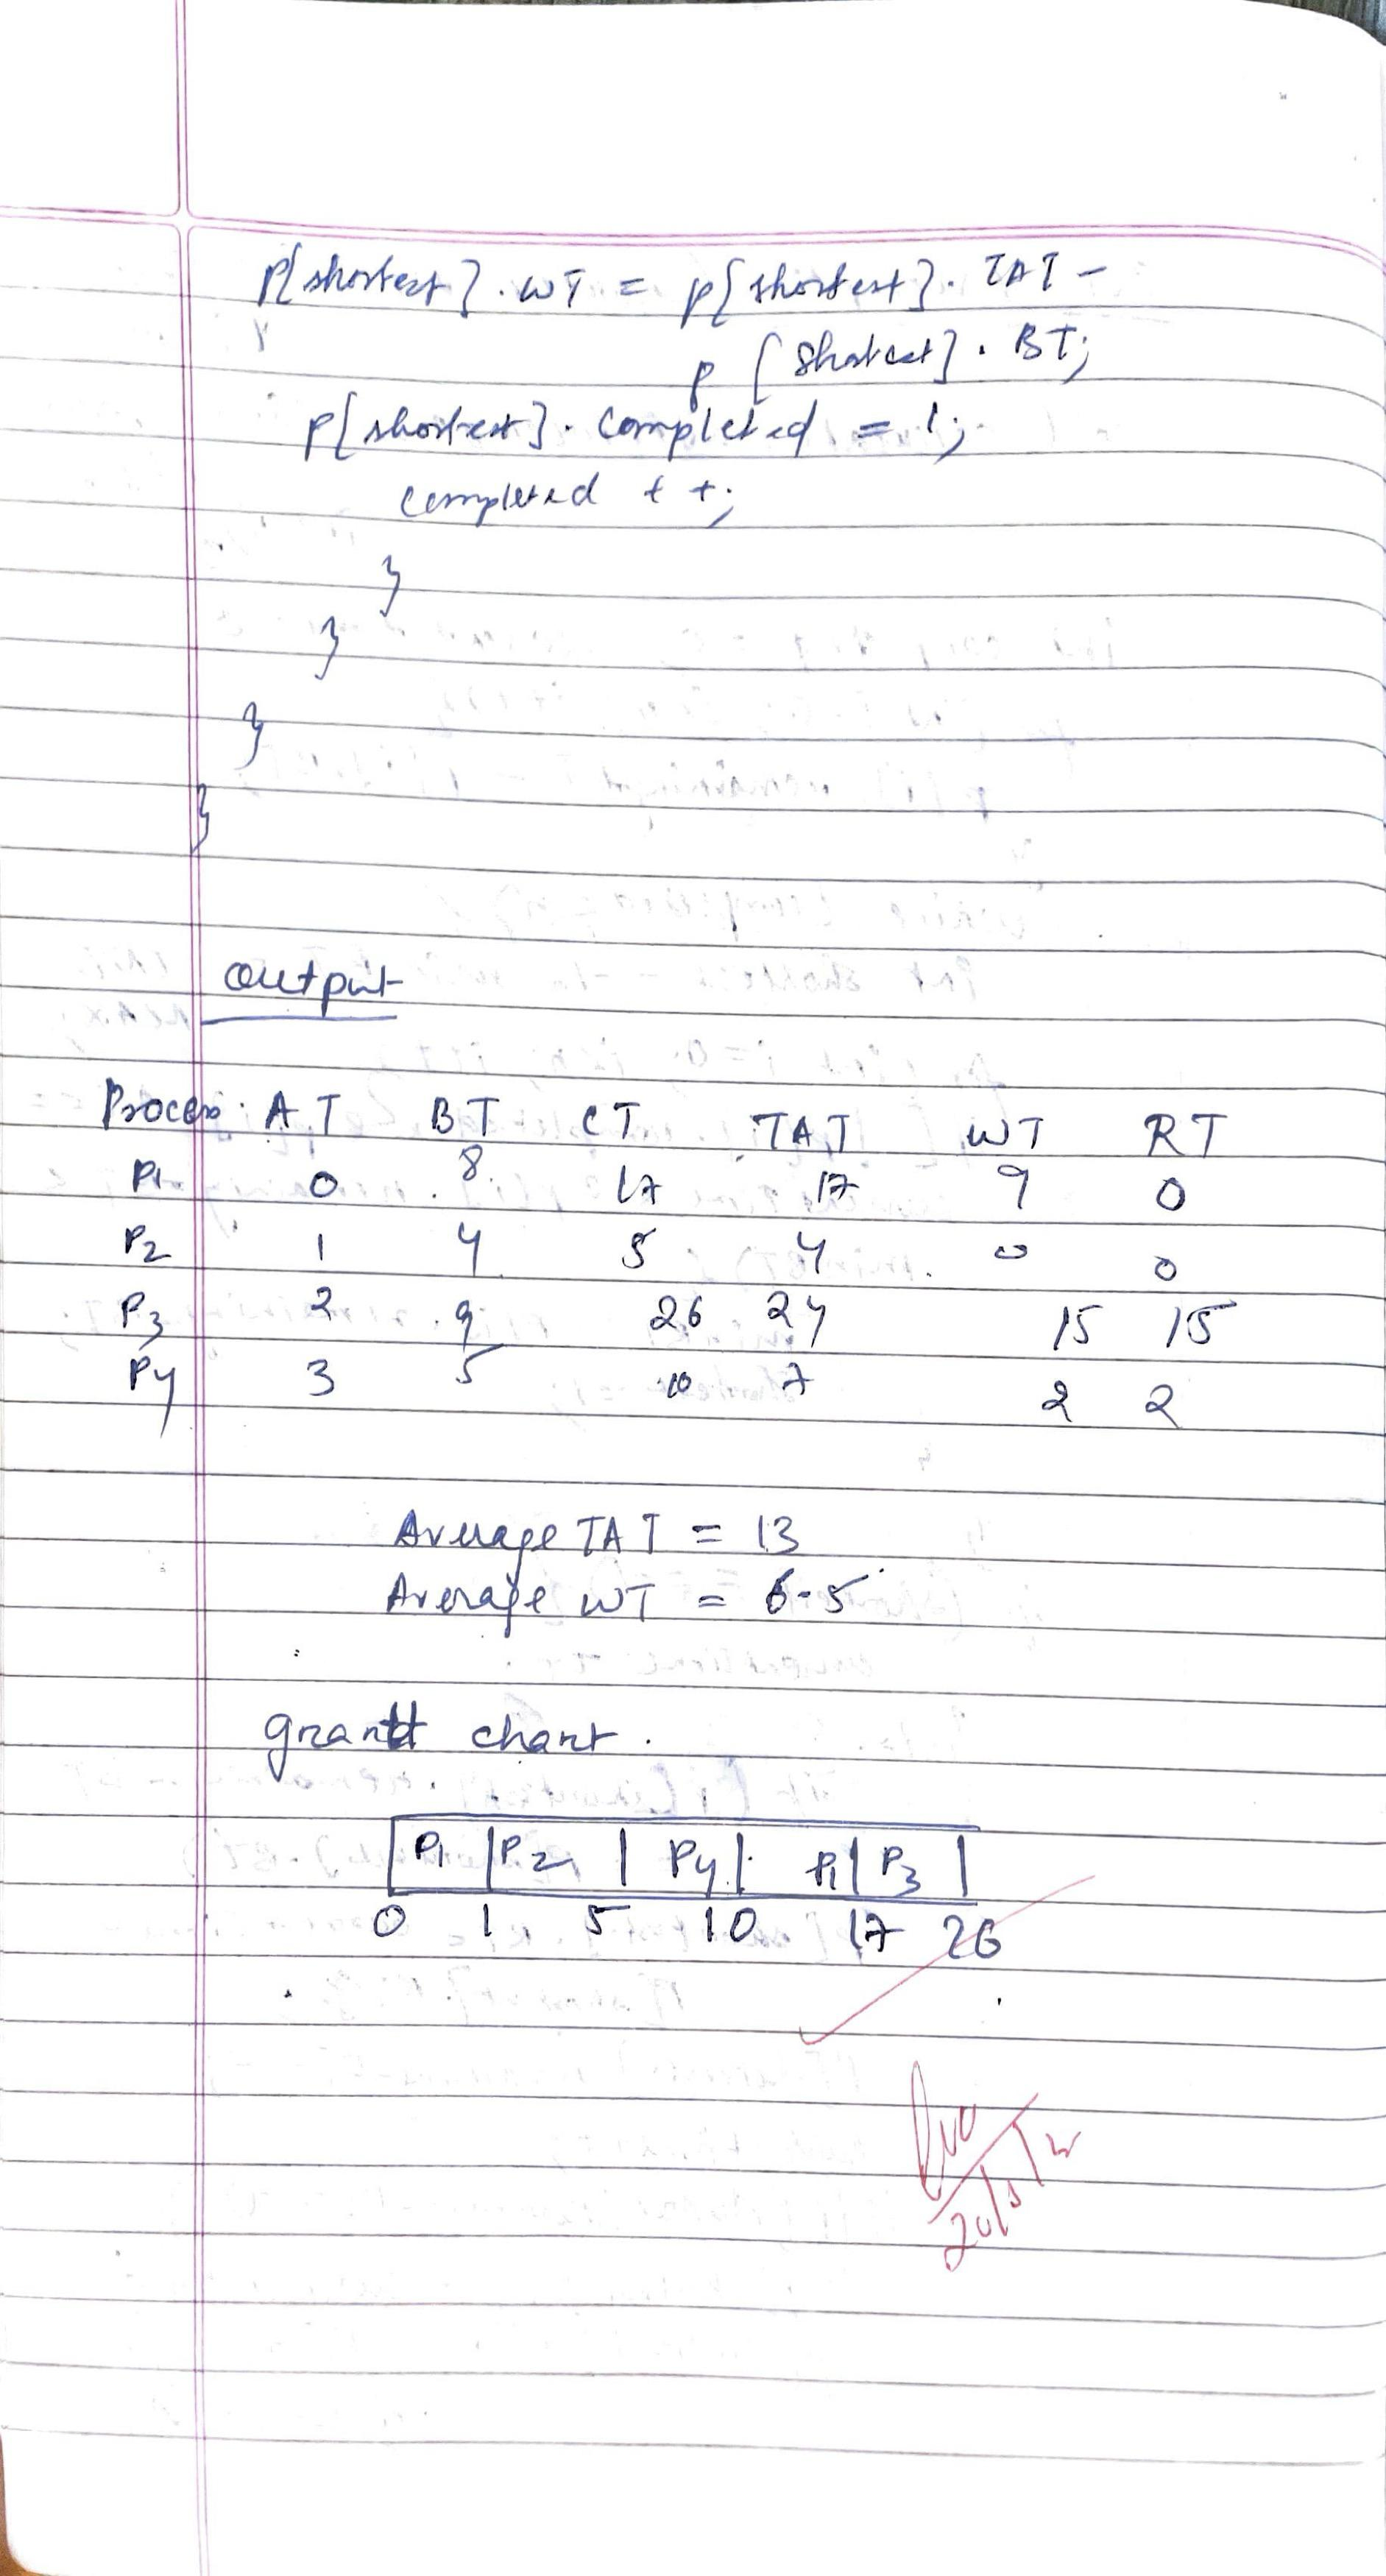 p[shortest].WT = p[shortest].TAT -
p[shortest].BT;
p[shortest].completed = 1;
completed ++;
}
}
}
}
output
Process AT BT CT TAT WT RT
P1 0 8 17 17 9 0
P2 1 4 5 4 0 0
P3 2 9 26 24 15 15
P4 3 5 10 7 2 2
Average TAT = 13
Average WT = 6.5
grantt chart.
P1 | P2 | P4 | P1 | P3 |
0 1 5 10 17 26